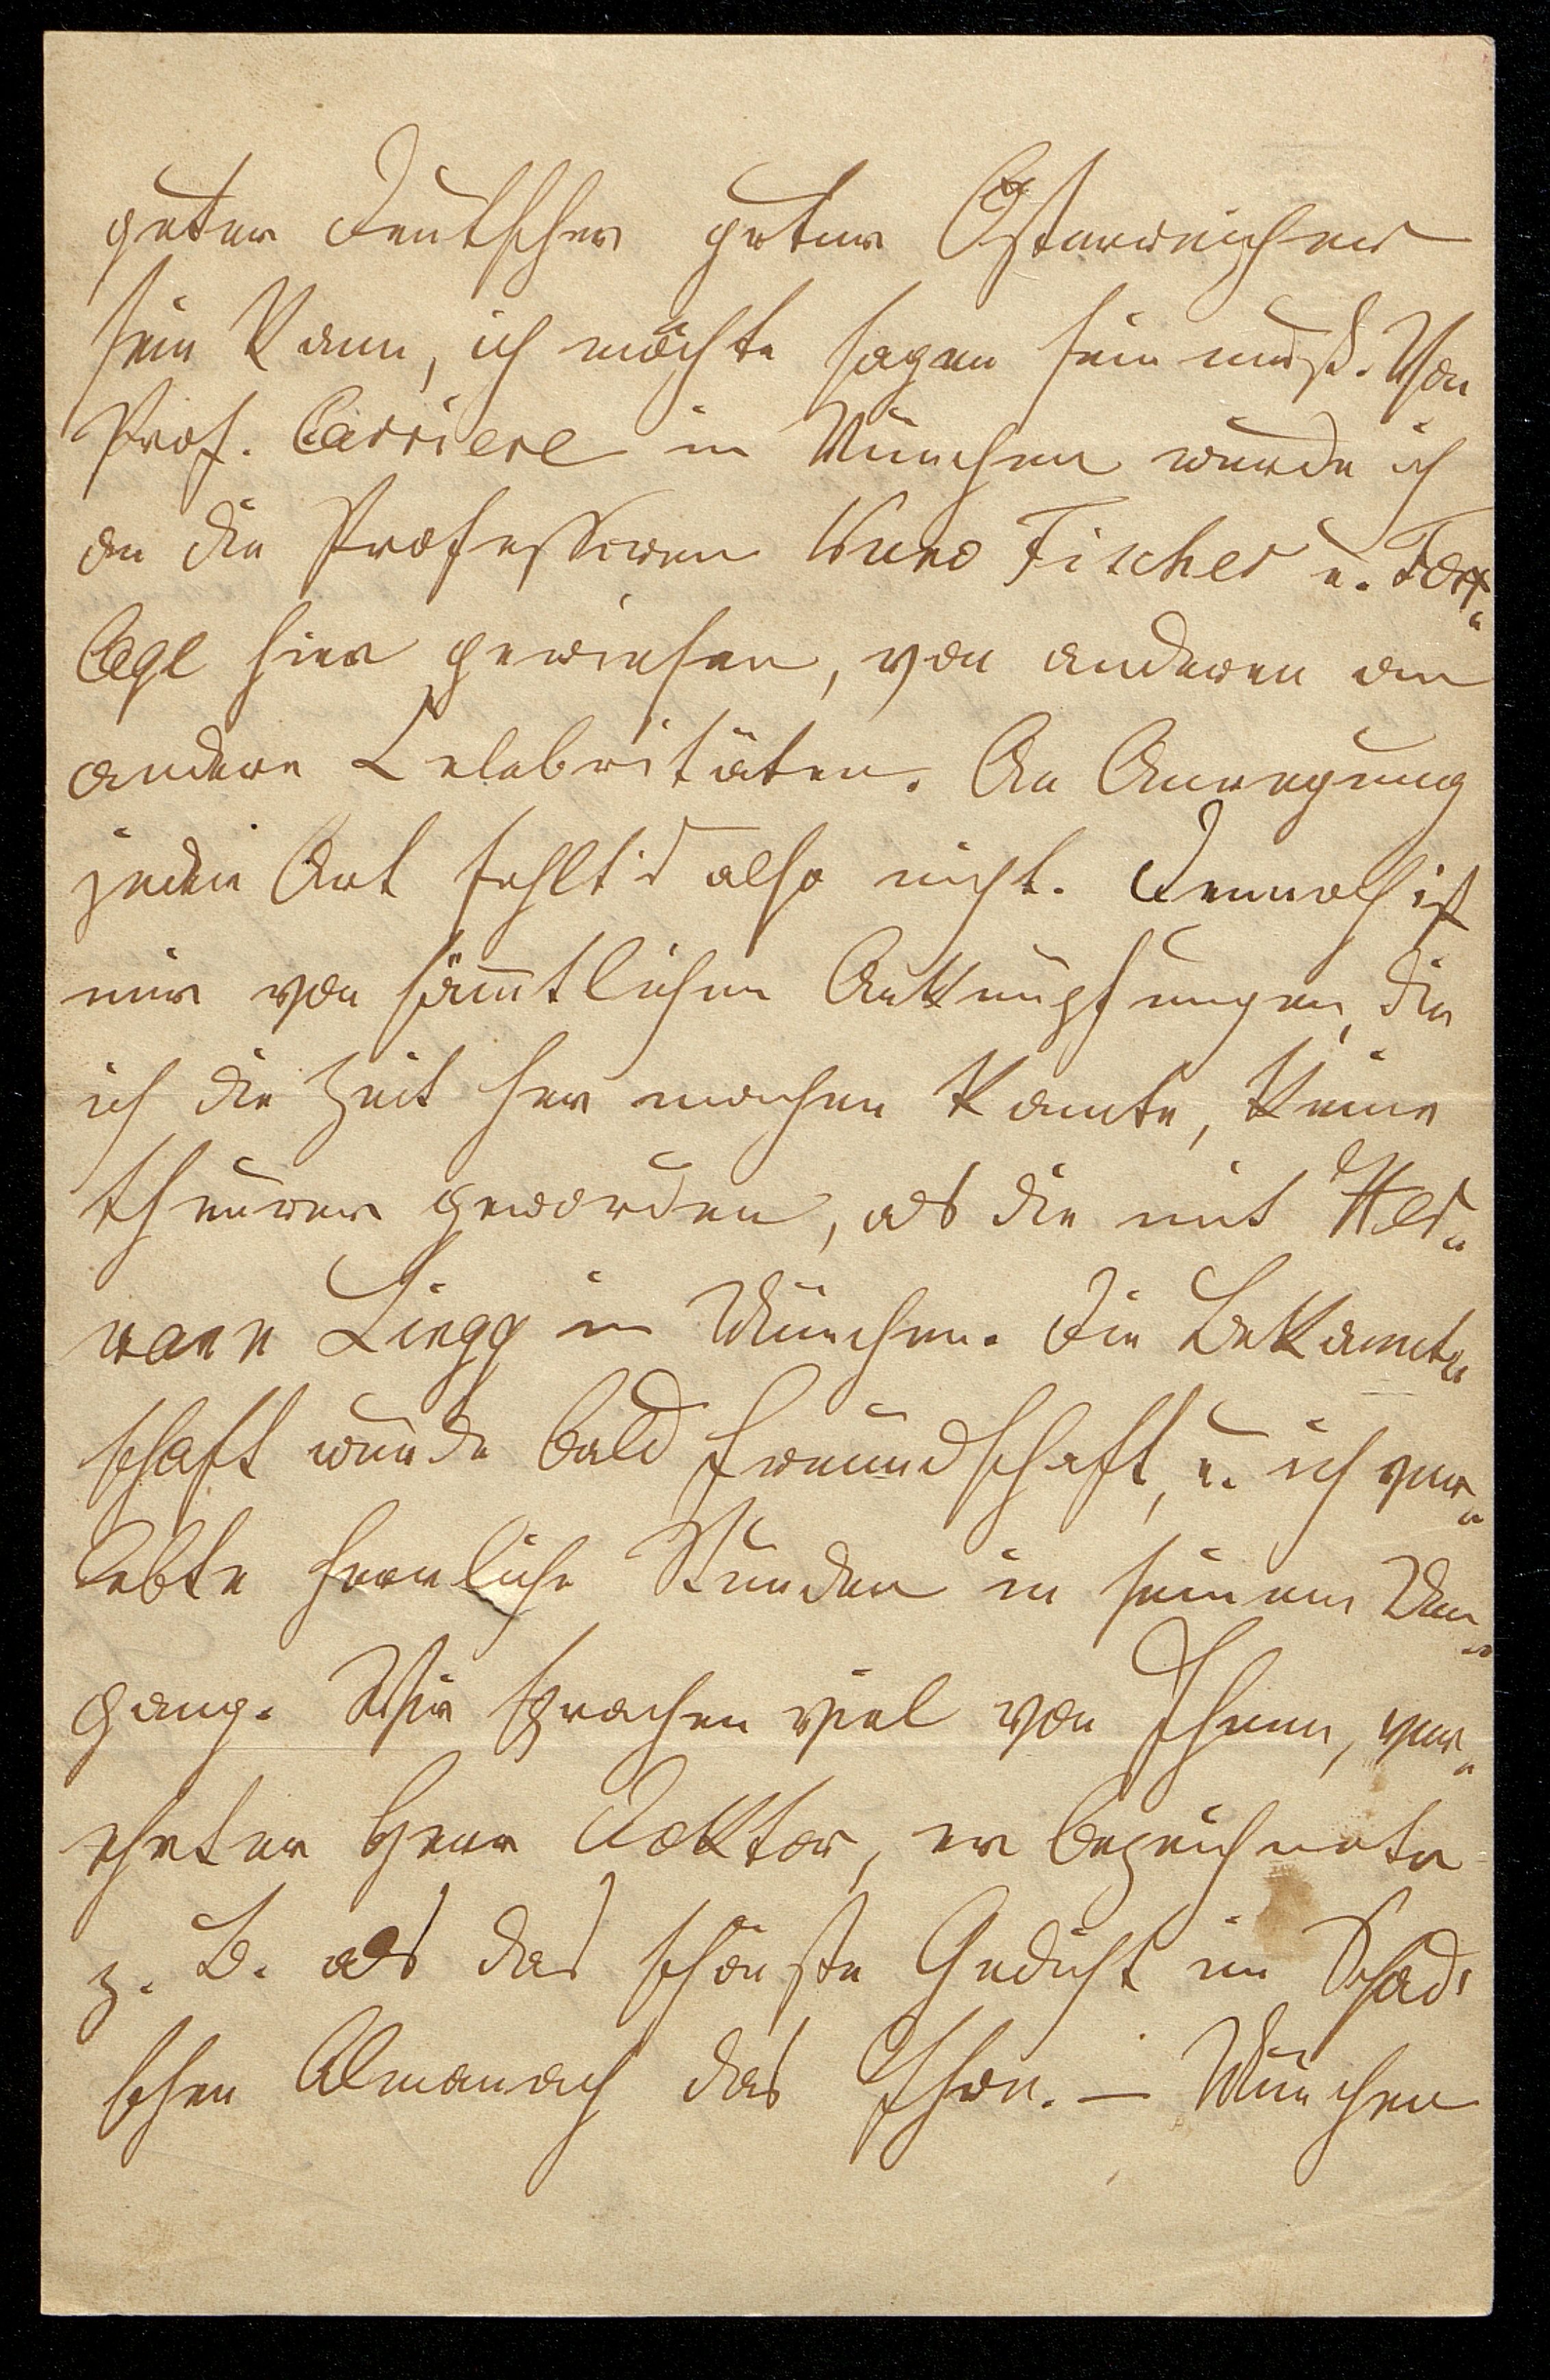 guter Deutscher guter Österreicher
sein kann, ich möchte sagen sein muß. Von
Prof. Carriere in München wurde ich
an die Professoren Kuno Fischer u. Fort-
lage hier gewiesen, von anderen an
andere Celebritäten. An Anregung
jeder Art fehlt's also nicht. Dennoch ist
mir von sämmtlichen Anknüpfungen, die
ich die Zeit her machen konnte, keine
theurer geworden, als die mit Her-
mann Lingg in München. Die Bekannt-
schaft wurde bald Freundschaft, u. ich ver-
lebte herrliche Stunden in seinem Um-
gang. Wir sprachen viel von Ihnen, ver-
ehrter Herr Doktor, er bezeichnete
z. B. als das schönste Gedicht im Schad'
schen Almanach das Ihre. — München